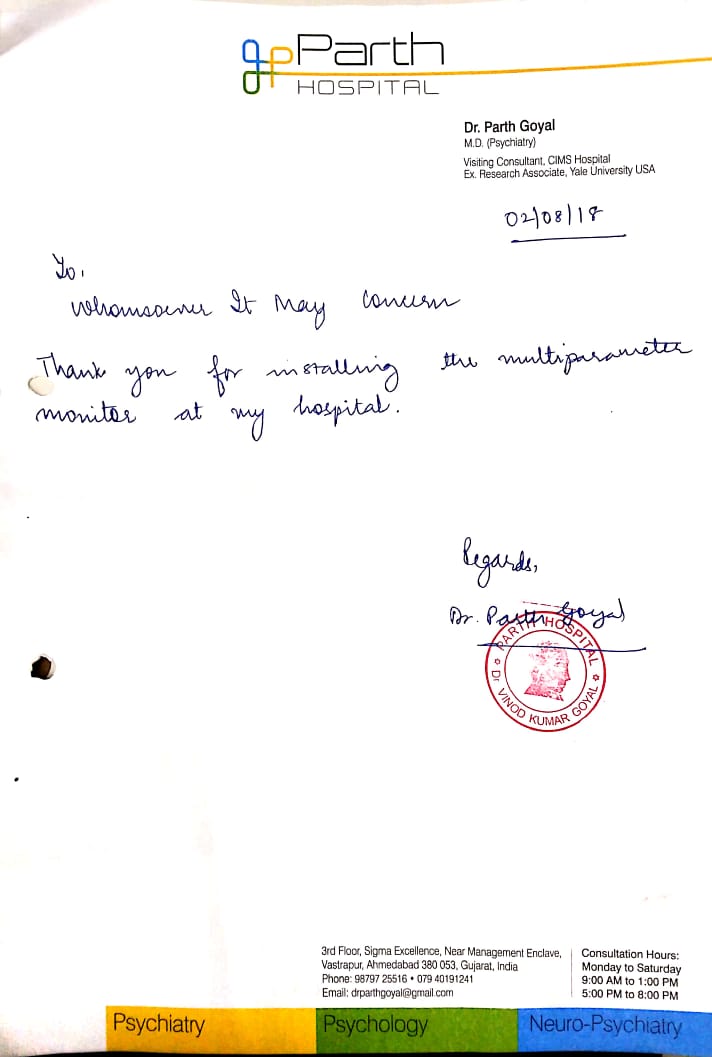 Parth
HOSPITAL
Dr. Parth Goyal
M.D. (Psychiatry)
Visiting Consultant, CIMS Hospital
Ex. Research Associate, Yale University USA
02/08/18
To,
Whomsoever It May Concern
Thank you for installing the multiparameter
monitor at my hospital.
Regards,
Dr. Parth Goyal
PARTH HOSPITAL
Dr VINOD KUMAR GOYAL
3rd Floor, Sigma Excellence, Near Management Enclave,
Vastrapur, Ahmedabad 380 053, Gujarat, India
Phone: 98797 25516 • 079 40191241
Email: drparthgoyal@gmail.com
Consultation Hours:
Monday to Saturday
9:00 AM to 1:00 PM
5:00 PM to 8:00 PM
Psychiatry Psychology Neuro-Psychiatry